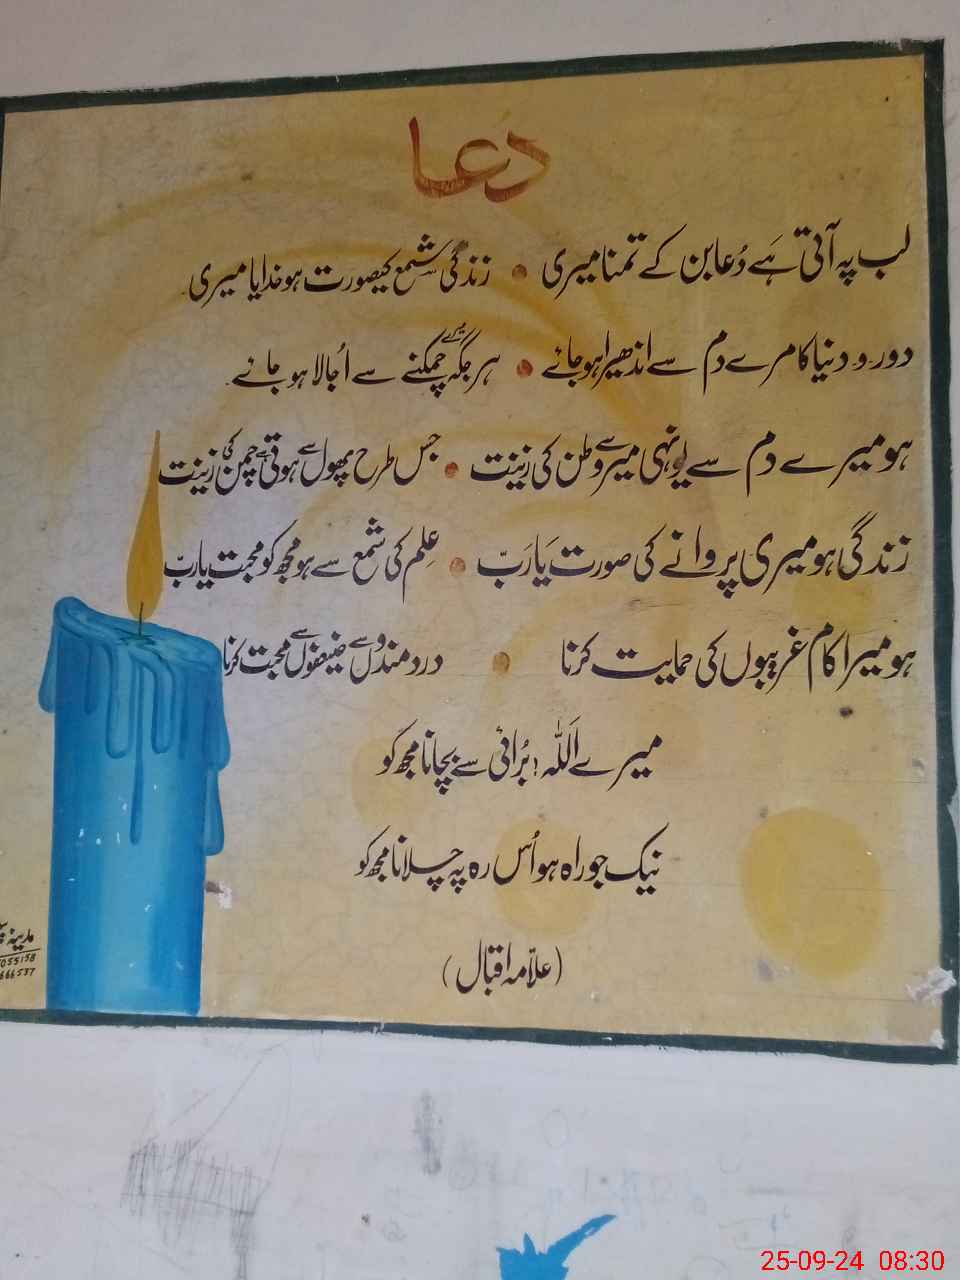 دُعا
لب پہ آتی ہے دُعا بن کے تمنا میری • زندگی شمع کیصورت ہو خدایا میری
دور دنیا کا مرے دم سے اندھیرا ہو جائے • ہر جگہ میرے چمکنے سے اُجالا ہو جائے
ہو میرے دم سے یونہی میرے وطن کی زینت • جس طرح پھول سے ہوتی ہے چمن کی زینت
زندگی ہو میری پروانے کی صورت یَارَبّ • عِلم کی شمع سے ہو مجھ کو محبت یاربّ
ہو میرا کام غریبوں کی حمایت کرنا • دردمندوں سے ضیعفوں سے محبت کرنا
میرے اَللہ! بُرائی سے بچانا مجھ کو
نیک جو راہ ہو اُس رہ پہ چلانا مجھ کو
(علاّمہ اقبال)
مدینہ
055158
666537
25-09-24 08:30